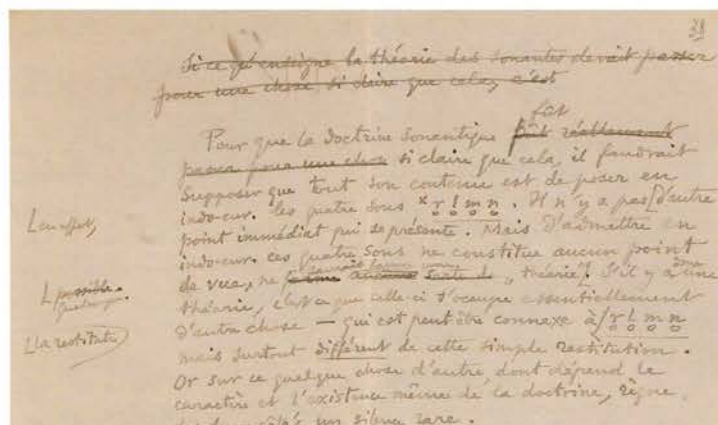 38
Si ce qu'enseigne la théorie des sonantes devait passer
pour une chose si claire que cela, c'est
fût
Pour que la doctrine sonantique pût réellement
passer pour une chose si claire que cela, il faudrait
supposer que tout son contenu est de poser en
indo-eur. les quatre sons *r̥ l̥ m̥ n̥. Il n'y a pas d'autre
L en effet,
point immédiat qui se présente. Mais d'admettre en
indo-eur. ces quatre sons ne constitue aucun point
de vue, ne aucune sorte de „théorie". S'il y a une
L possible.
quelconque
théorie, c'est que celle-ci s'occupe essentiellement
d'autre chose — qui est peut être connexe à r̥ l̥ m̥ n̥
L la restitution
mais surtout différent de cette simple restitution.
Or sur ce quelque chose d'autre dont dépend le
caractère et l'existence même de la doctrine, règne,
un silence rare.